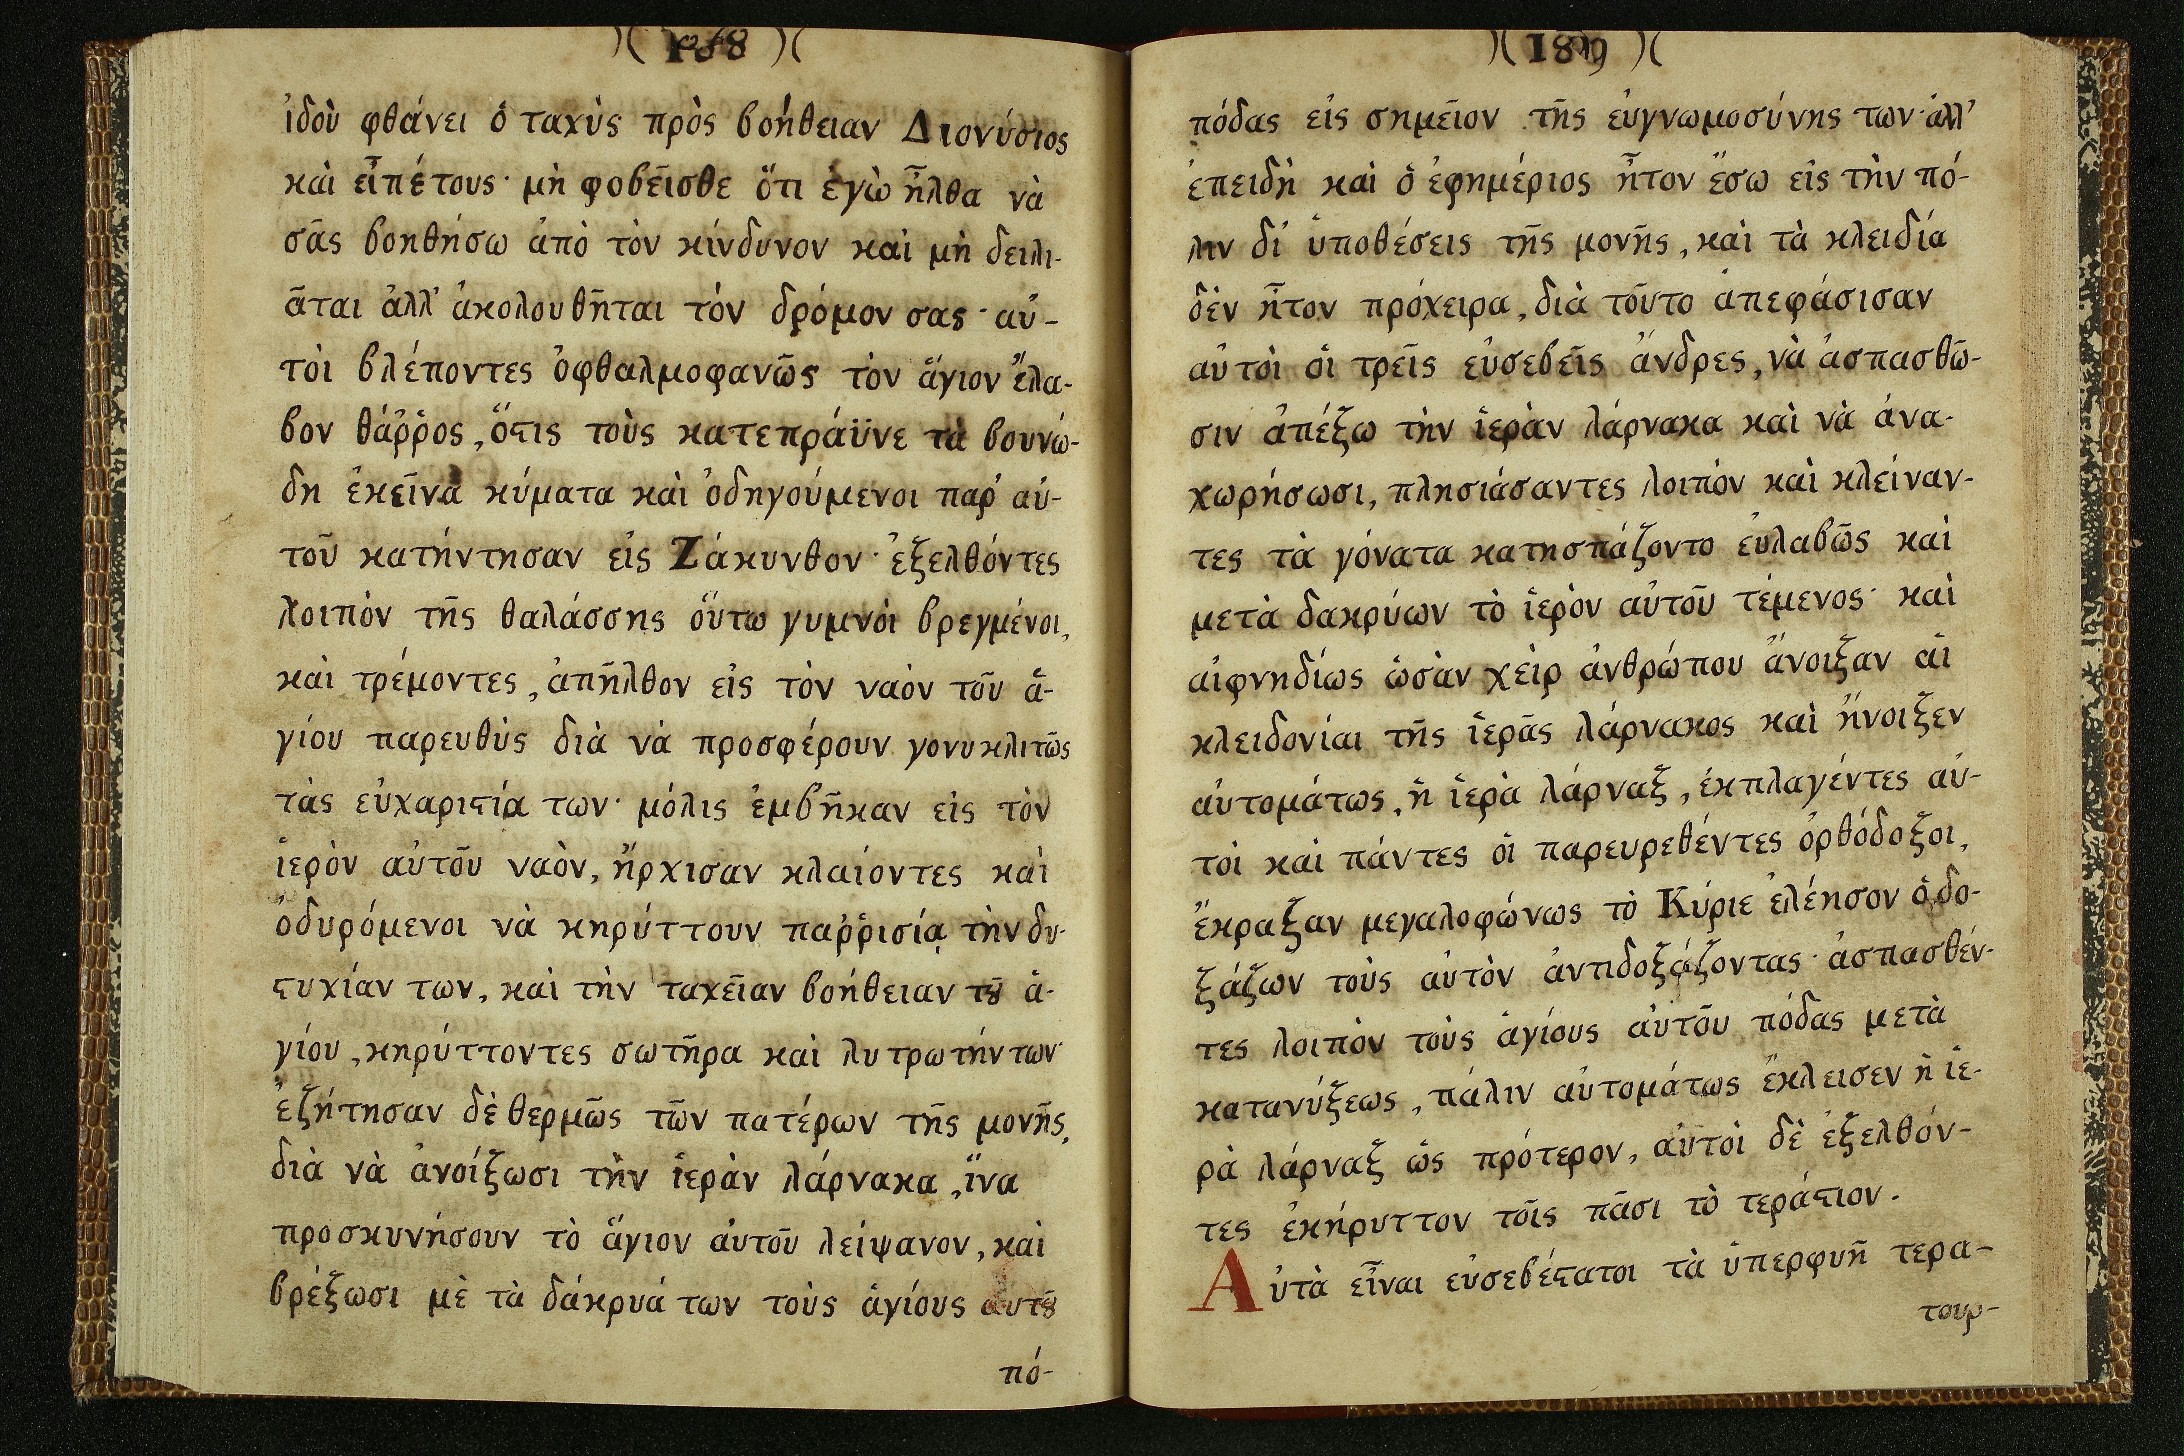 ἰδοὺ φθάνει ὁ ταχὺς πρὸς βοήθειαν Διονύσιος
καὶ εἶπέ τους· μὴ φοβεῖσθε ὅτι ἐγὼ ἦλθα νὰ
σᾶς βοηθήσω ἀπὸ τὸν κίνδυνον καὶ μὴ δειλι-
ᾶται ἀλλ' ἀκολουθῆται τόν δρόμον σας· αὐ-
τοὶ βλέποντες ὀφθαλμοφανῶς τὸν ἅγιον ἔλα-
βον θάῤῥος, ὅϛις τοὺς κατεπράϋνε τὰ βουνώ-
δη ἐκεῖνα κύματα καὶ ὁδηγούμενοι παρ' αὐ-
τοῦ κατήντησαν εἰς Ζάκυνθον· ἐξελθόντες
λοιπὸν τῆς θαλάσσης οὕτω γυμνοὶ βρεγμένοι,
καὶ τρέμοντες, ἀπῆλθον εἰς τὸν ναὸν τοῦ ἁ-
γίου παρευθὺς διὰ νὰ προσφέρουν γονυκλιτῶς
τὰς εὐχαριϛία των· μόλις ἐμβῆκαν εἰς τὸν
ἱερὸν αὐτοῦ ναὸν, ἤρχισαν κλαίοντες καὶ
ὀδυρόμενοι νὰ κηρύττουν παῤῥισίᾳ τὴν δυ-
ϛυχίαν των, καὶ τὴν ταχεῖαν βοήθειαν τȣ͂ ἁ-
γίου, κηρύττοντες σωτῆρα καὶ λυτρωτήν των·
ἐζήτησαν δὲ θερμῶς τῶν πατέρων τῆς μονῆς,
διὰ νὰ ἀνοίξωσι τὴν ἱερὰν λάρνακα, ἵνα
προσκυνήσουν τὸ ἅγιον αὐτοῦ λείψανον, καὶ
βρέξωσι μὲ τὰ δάκρυά των τοὺς ἁγίους αὐτȣ͂
πό-
)( 189 )(
πόδας εἰς σημεῖον τῆς εὐγνωμοσύνης των· ἀλλ'
ἐπειδὴ καὶ ὁ ἐφημέριος ἦτον ἔσω εἰς τὴν πό-
λιν δι' ὑποθέσεις τῆς μονῆς, καὶ τὰ κλειδία
δὲν ἦτον πρόχειρα, διὰ τοῦτο ἀπεφάσισαν
αὐτοὶ οἱ τρεῖς εὐσεβεῖς ἄνδρες, νὰ ἀσπασθῶ-
σιν ἀπέξω τὴν ἱερὰν λάρνακα καὶ νὰ ἀνα-
χωρήσωσι, πλησιάσαντες λοιπὸν καὶ κλείναν-
τες τὰ γόνατα κατησπάζοντο εὐλαβῶς καὶ
μετὰ δακρύων τὸ ἱερὸν αὐτοῦ τέμενος· καὶ
αἰφνηδίως ὡσὰν χεὶρ ἀνθρώπου ἄνοιξαν αἱ
κλειδονίαι τῆς ἱερᾶς λάρνακος καὶ ἤνοιξεν
αὐτομάτως, ἡ ἱερὰ λάρναξ, ἐκπλαγέντες αὐ-
τοὶ καὶ πάντες οἱ παρευρεθέντες ὀρθόδοξοι,
ἔκραξαν μεγαλοφώνως τὸ Κύριε ἐλέησον ὁ δο-
ξάζων τοὺς αὐτὸν ἀντιδοξάζοντας· ἀσπασθέν-
τες λοιπὸν τοὺς ἁγίους αὐτοῦ πόδας μετὰ
κατανύξεως, πάλιν αὐτομάτως ἔκλεισεν ἡ ἱε-
ρὰ λάρναξ ὡς πρότερον, αὐτοὶ δὲ ἐξελθόν-
τες ἐκήρυττον τοῖς πᾶσι τὸ τεράϛιον.
Αὐτὰ εἶναι εὐσεβέϛατοι τὰ ὑπερφυῆ τερα-
τουρ-